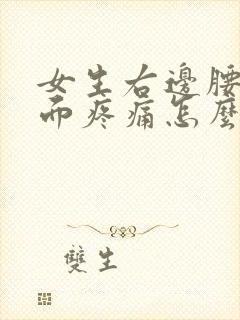 女生右邊腰
而疼痛怎麼
雙生